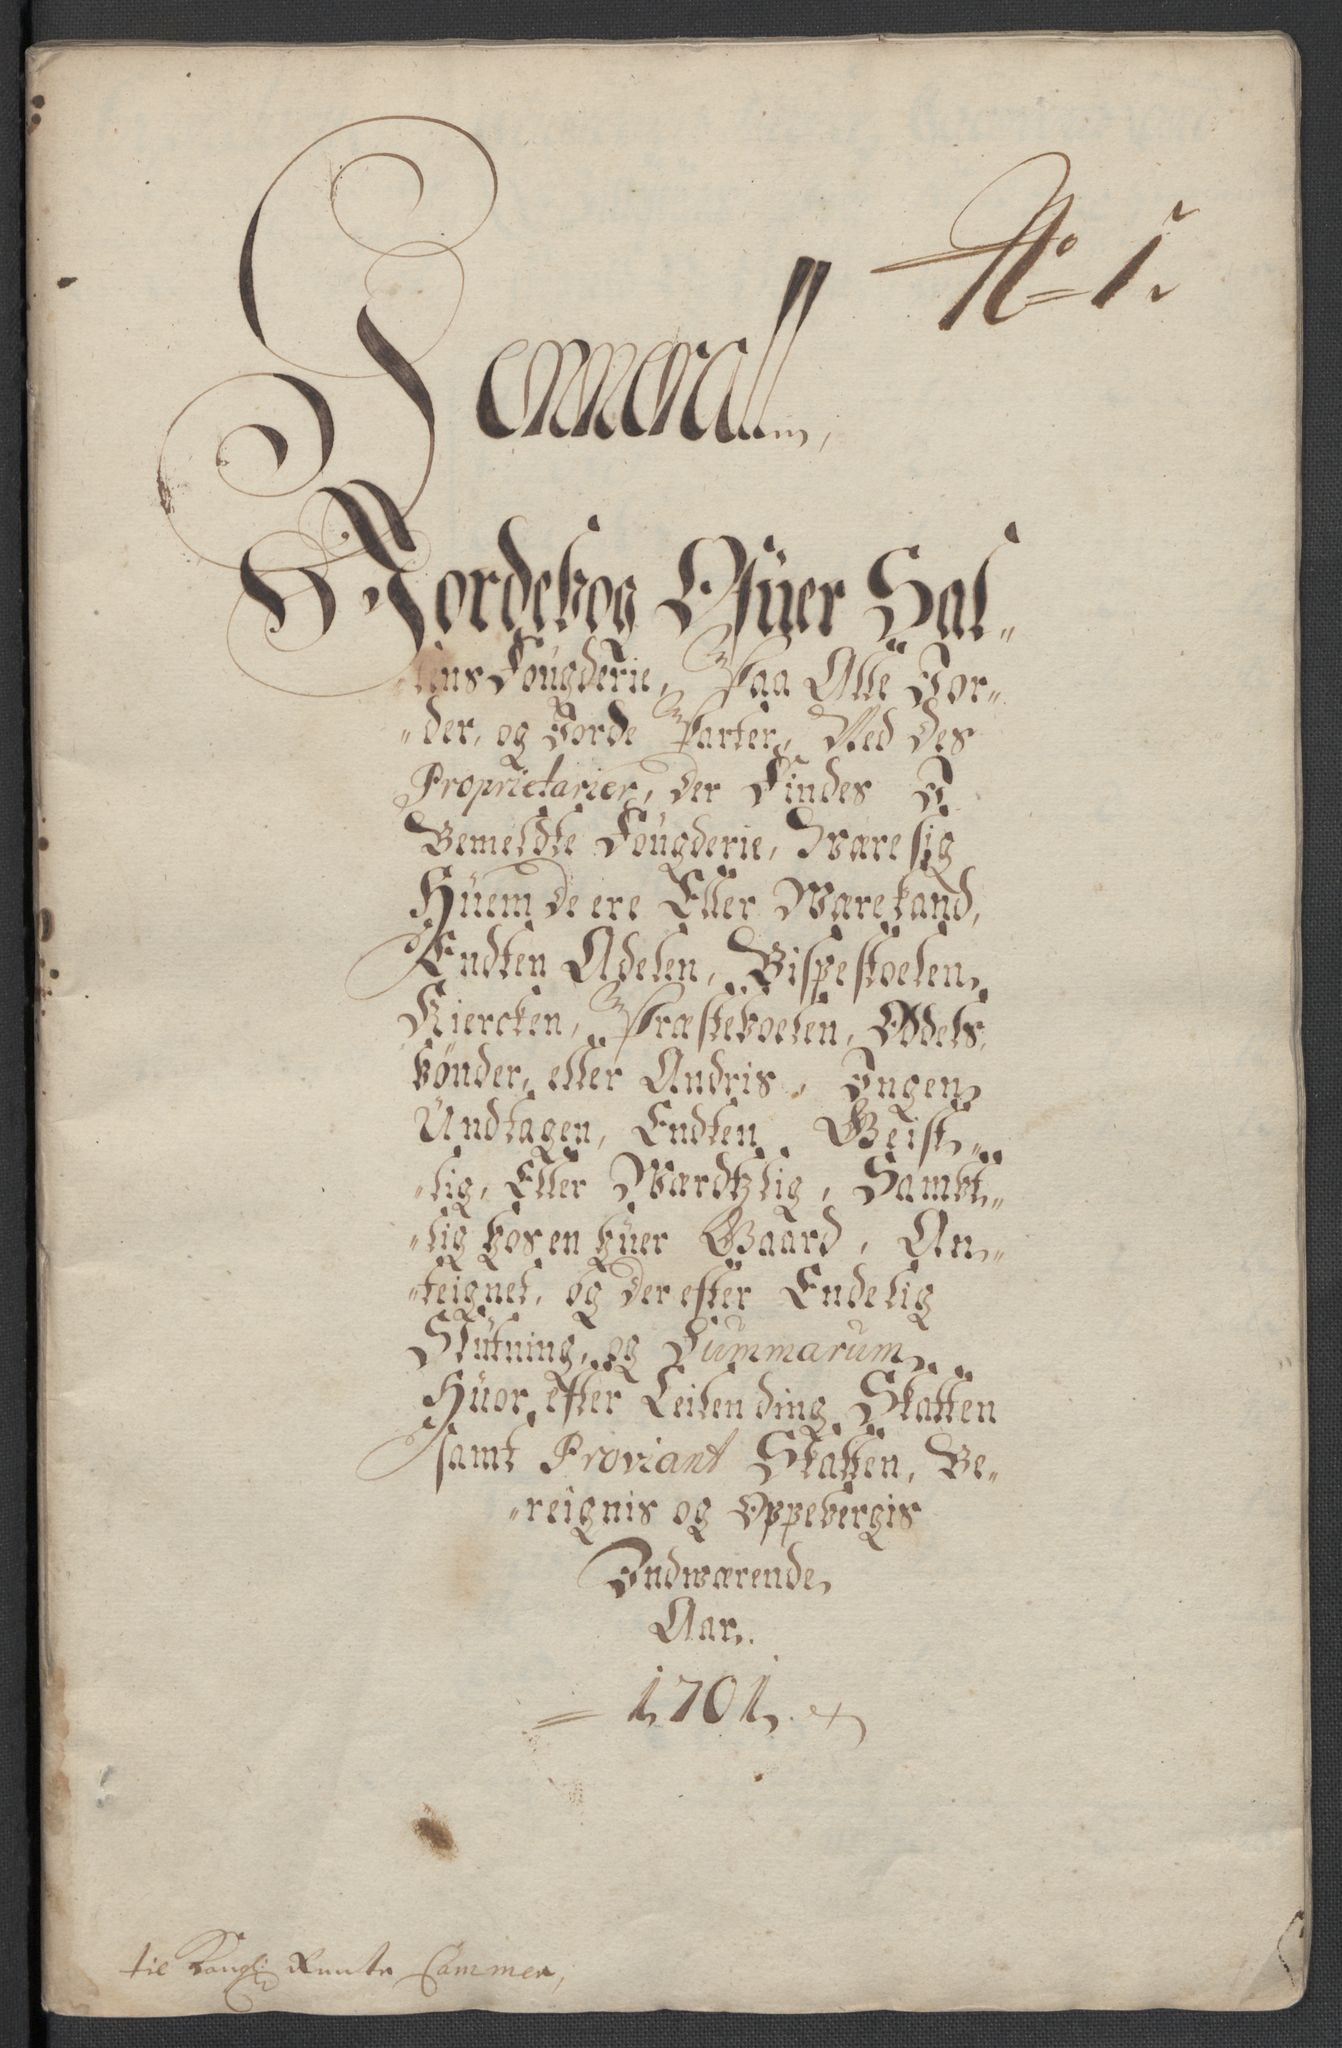 No 1.
Generall
Jordebog Ofuer Sal„
„tens Fougderie, Paa Alle Jor„
„der, og Jorde Parter, Med des
Proprietarier, der Findes I
Bemeldte Fougderie, Være sig
Huem de ere Eller Være kand,
Endten Adelen, Bispestoelen,
Kiercken, Præsteboelen, Odels
bønder, eller Andris, Ingen
Undtagen, Endten Geist„
„lig, Eller Værdtzlig, Sambt„
„lig hos en huer Gaard, An„
„teignet, og der efter Endelig
Slutning, og Summarum,
Huor efter Leilending Skatten
samt Proviant Skatten, Be„
„reignis og Oppebergis
Indværende
Aar.
1701.
til Kongl: Rente Cammer,